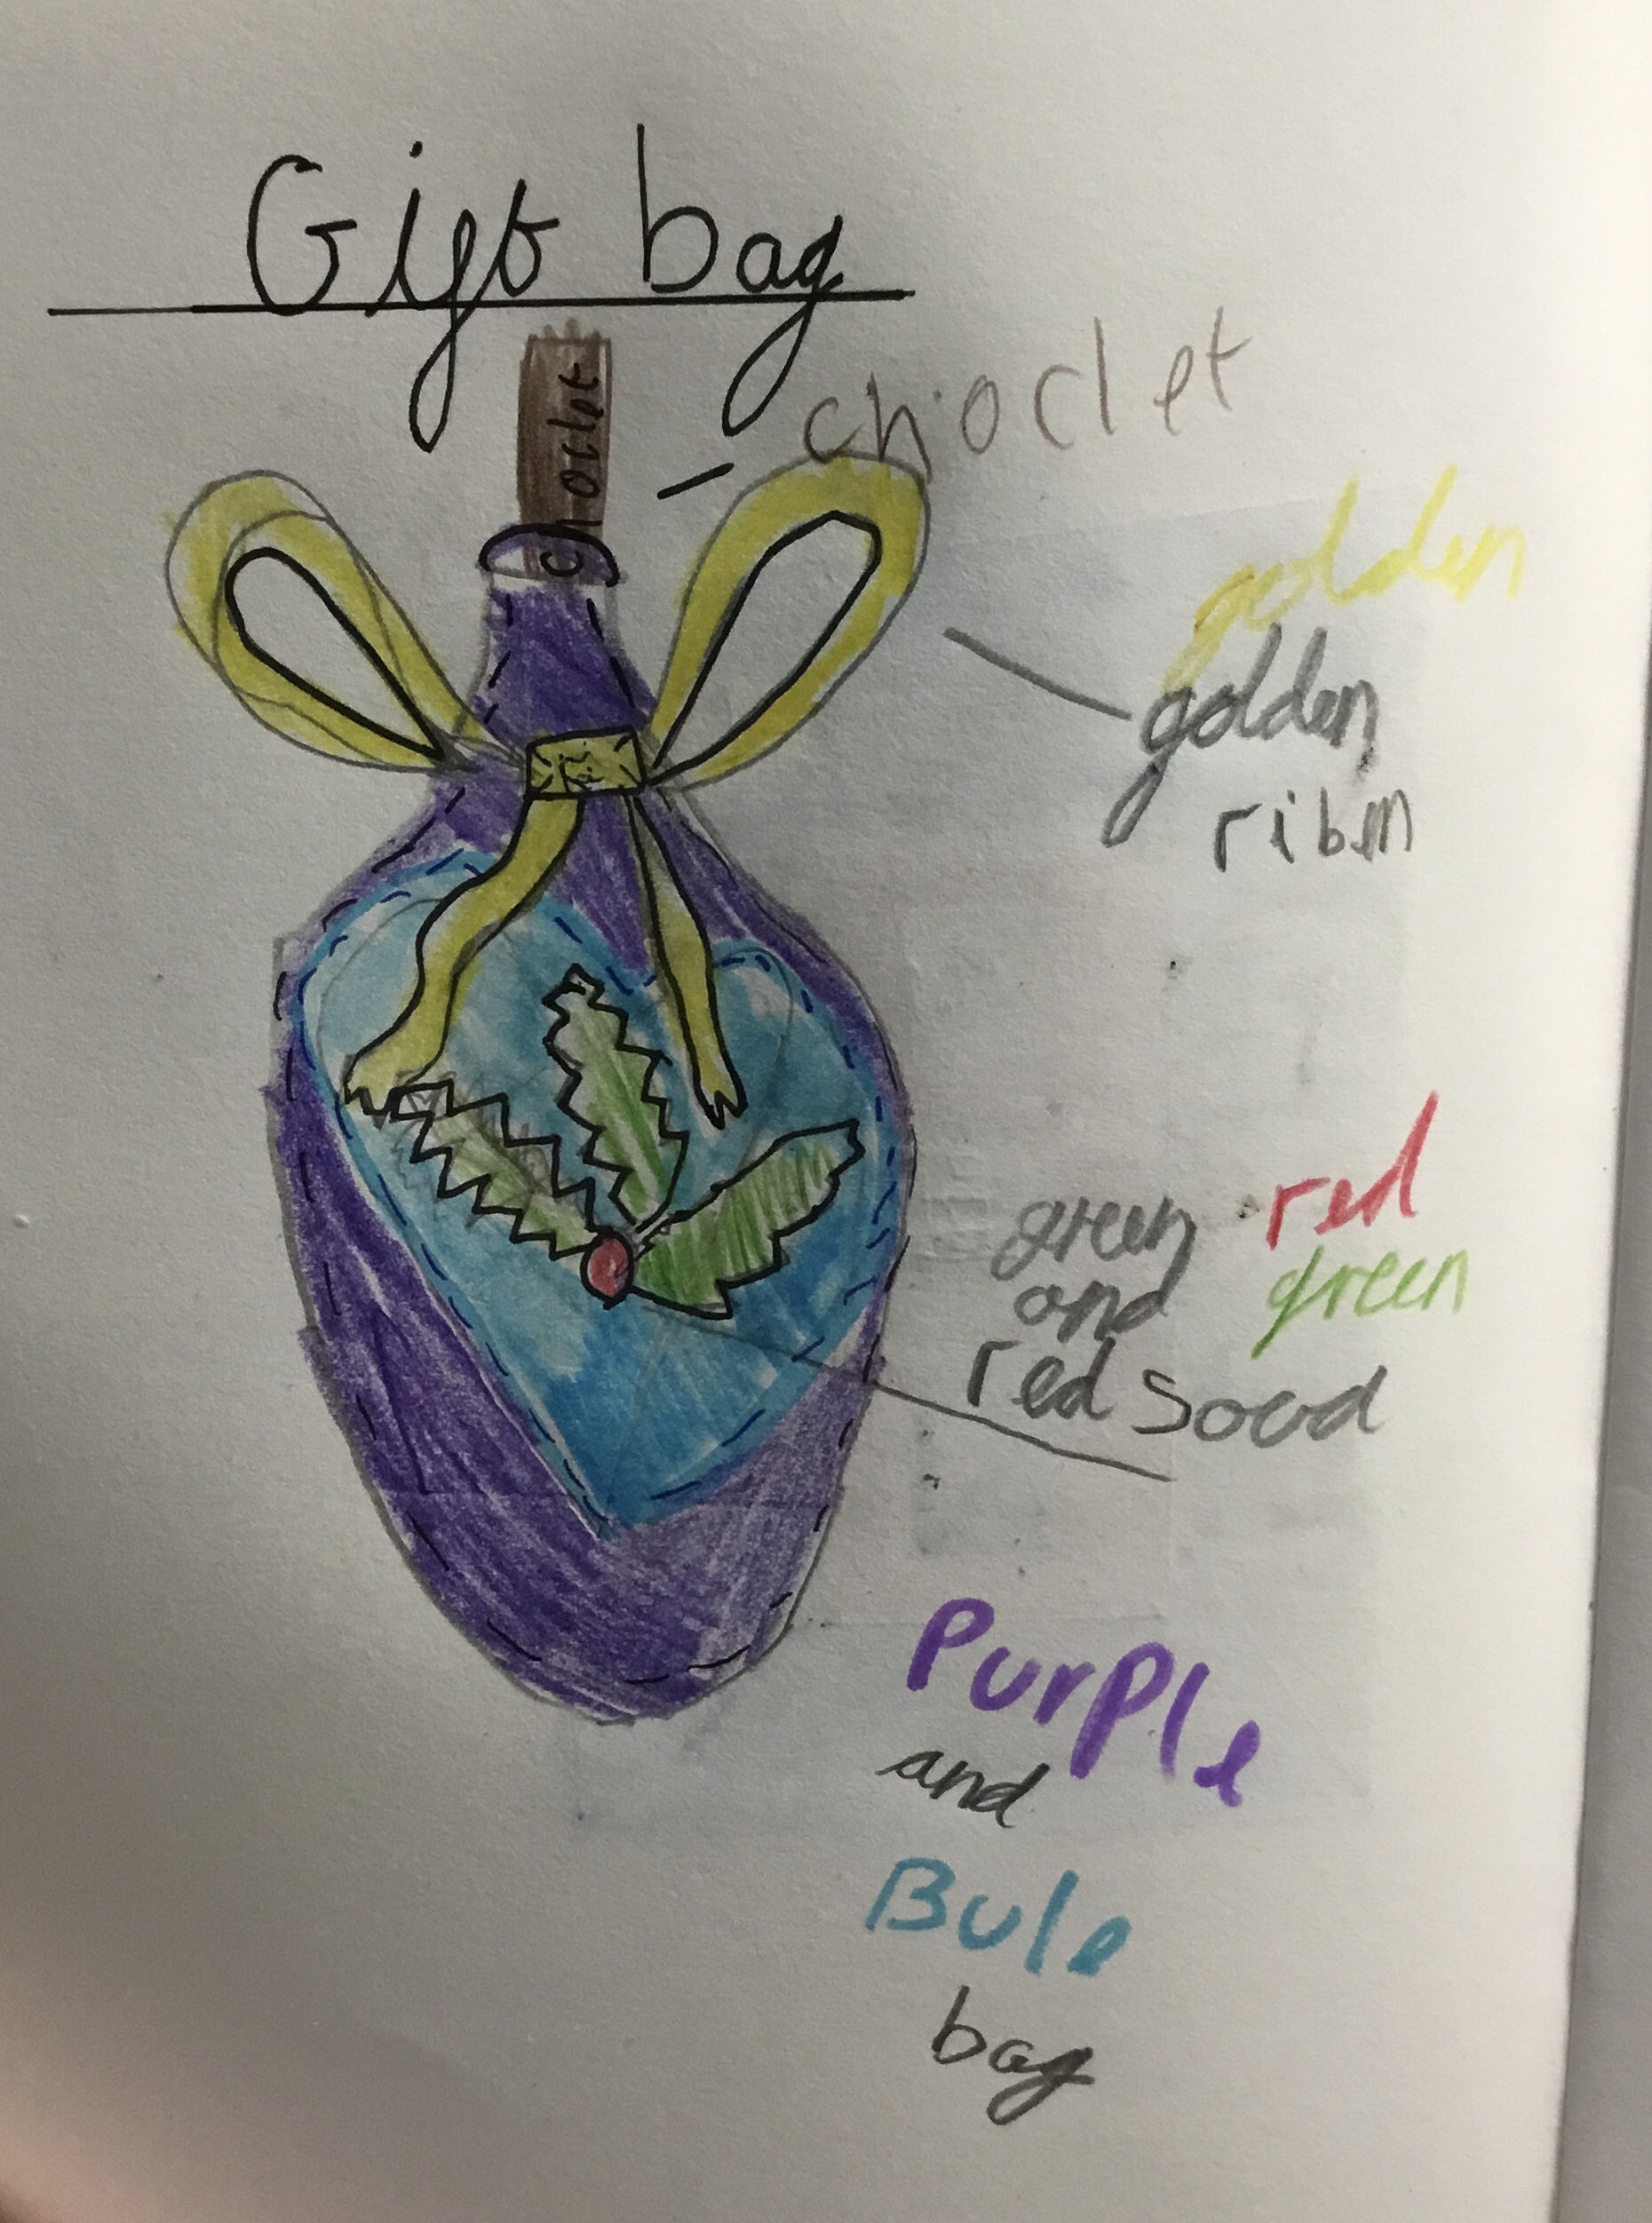 Gift bag
choclet
choclet
golden
golden
ribon
green
and
red soud
red
green
Purple
and
Bule
bag